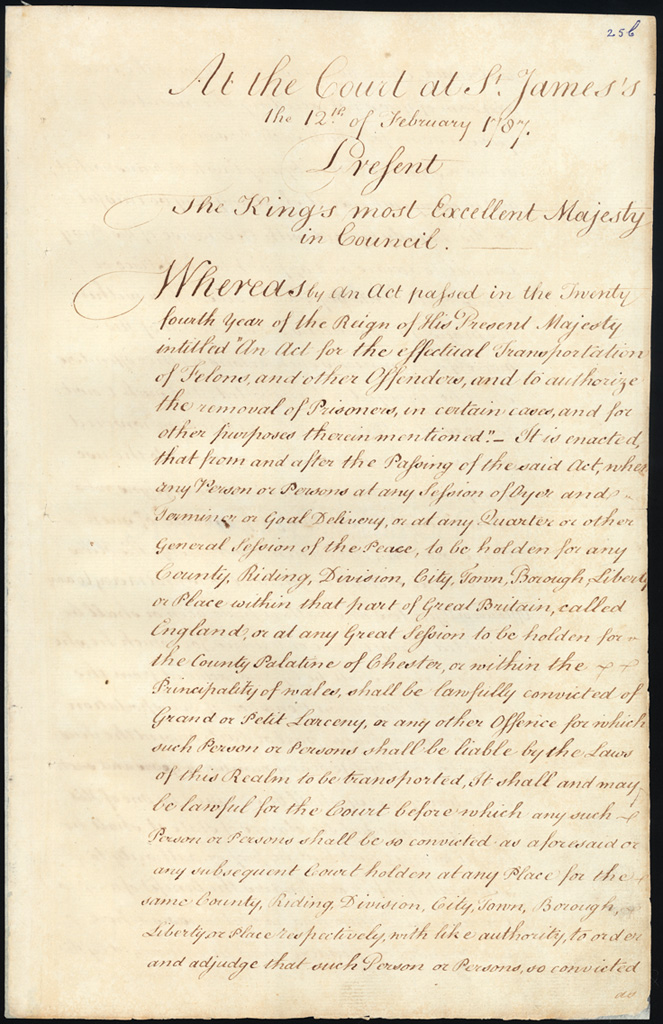 256
At the Court at St. James's
the 12th of February 1787.
Present
The King's most Excellent Majesty
in Council.
Whereas by An Act passed in the Twenty
fourth Year of the Reign of His Present Majesty
intitled "An Act for the effectual Transportation
of Felons, and other Offenders, and to authorize
the removal of Prisoners, in certain cases, and for
other purposes therein mentioned" — It is enacted,
that from and after the Passing of the said Act, when
any Person or Persons at any Session of Oyer and
Terminer or Goal Delivery, or at any Quarter or other
General Session of the Peace, to be holden for any
County, Riding, Division, City, Town, Borough, Liberty
or Place within that part of Great Britain, called
England, or at any Great Session to be holden for
the County Palatine of Chester, or within the
Principality of Wales, shall be lawfully convicted of
Grand or Petit Larceny, or any other Offence for which
such Person or Persons shall be liable by the Laws
of this Realm to be transported, It shall and may
be lawful for the Court before which any such
Person or Persons shall be so convicted as aforesaid or
any subsequent Court holden at any Place for the
same County, Riding, Division, City, Town, Borough,
Liberty or Place respectively, with like authority, to order
and adjudge that such Person or Persons, so convicted